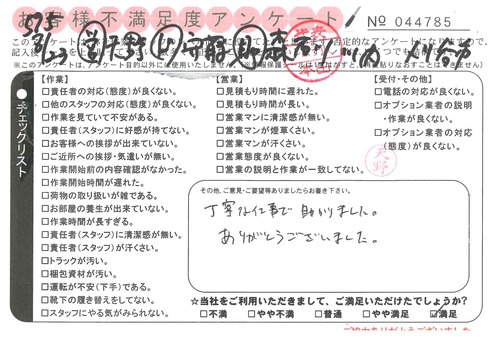 お客様不満足度アンケート
№ 044785
チェックリスト
【作業】
□責任者の対応(態度)が良くない。
□他のスタッフの対応(態度)が良くない。
□作業を見ていて不安がある。
□責任者(スタッフ)に好感が持てない。
□お客様への挨拶が出来ていない。
□ご近所への挨拶・気遣いが無い。
□作業開始前の内容確認がなかった。
□作業開始時間が遅れた。
□荷物の取り扱いが雑である。
□お部屋の養生が出来ていない。
□作業時間が長すぎる。
□責任者(スタッフ)に清潔感が無い。
□責任者(スタッフ)が汗くさい。
□トラックが汚い。
□梱包資材が汚い。
□運転が不安(下手)である。
□靴下の履き替えをしてない。
□スタッフにやる気がみられない。
【営業】
□見積もり時間に遅れた。
□見積もり時間が長い。
□営業マンに清潔感が無い。
□営業マンが煙草くさい。
□営業マンが汗くさい。
□営業態度が良くない。
□営業の説明と作業が一致してない。
【受付・その他】
□電話の対応が良くない。
□オプション業者の説明
・作業が良くない。
□オプション業者の対応
(態度)が良くない。
天野
その他、ご意見・ご要望等ありましたらお書き下さい。
丁寧な仕事で助かりました。
ありがとうございました。
☆当社をご利用いただきまして、ご満足いただけたでしょうか?
□不満 □やや不満 □普通 □やや満足 ☑満足
ご協力ありがとうございました